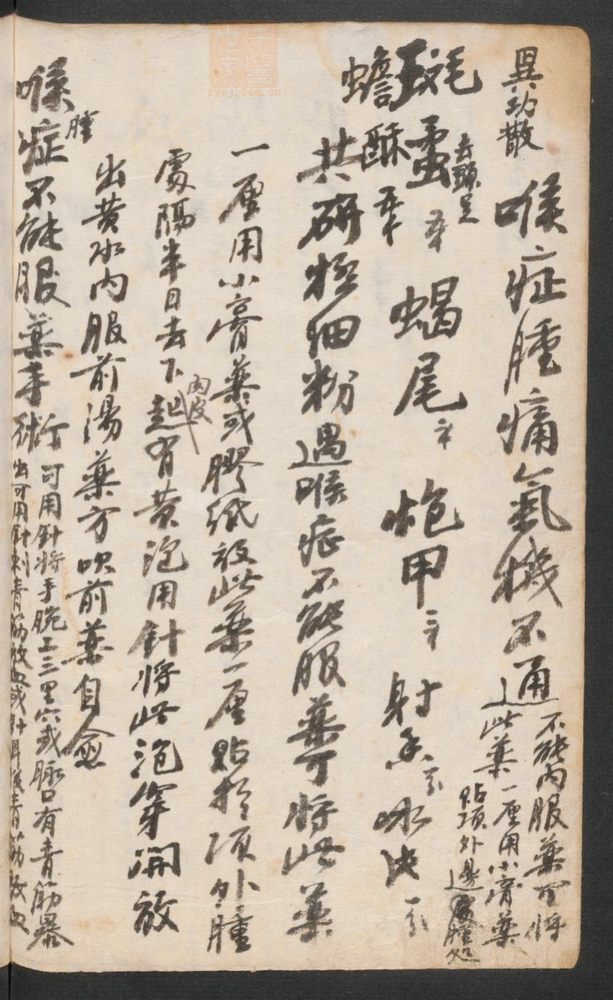 異功散
喉症腫痛氣機不通
不能內服藥可將
此藥一厘用小膏藥
貼項外邊腫処
斑毛
蝥
去頭足
蝎尾
炮甲
射香
冰片
蟾酥
共研極細粉遇喉症不能服藥可將此藥
一厘用小膏藥或膠紙放此藥一厘貼於項外腫
處隔半日去下起有黃泡用針將此泡穿開放
肉皮
出黃水內服前湯藥方吹前藥自愈
喉症不能服藥手術
腫
可用針將手腕上三里穴或脉口有青筋暴
出可用針刺青筋放血或針耳後青筋放血